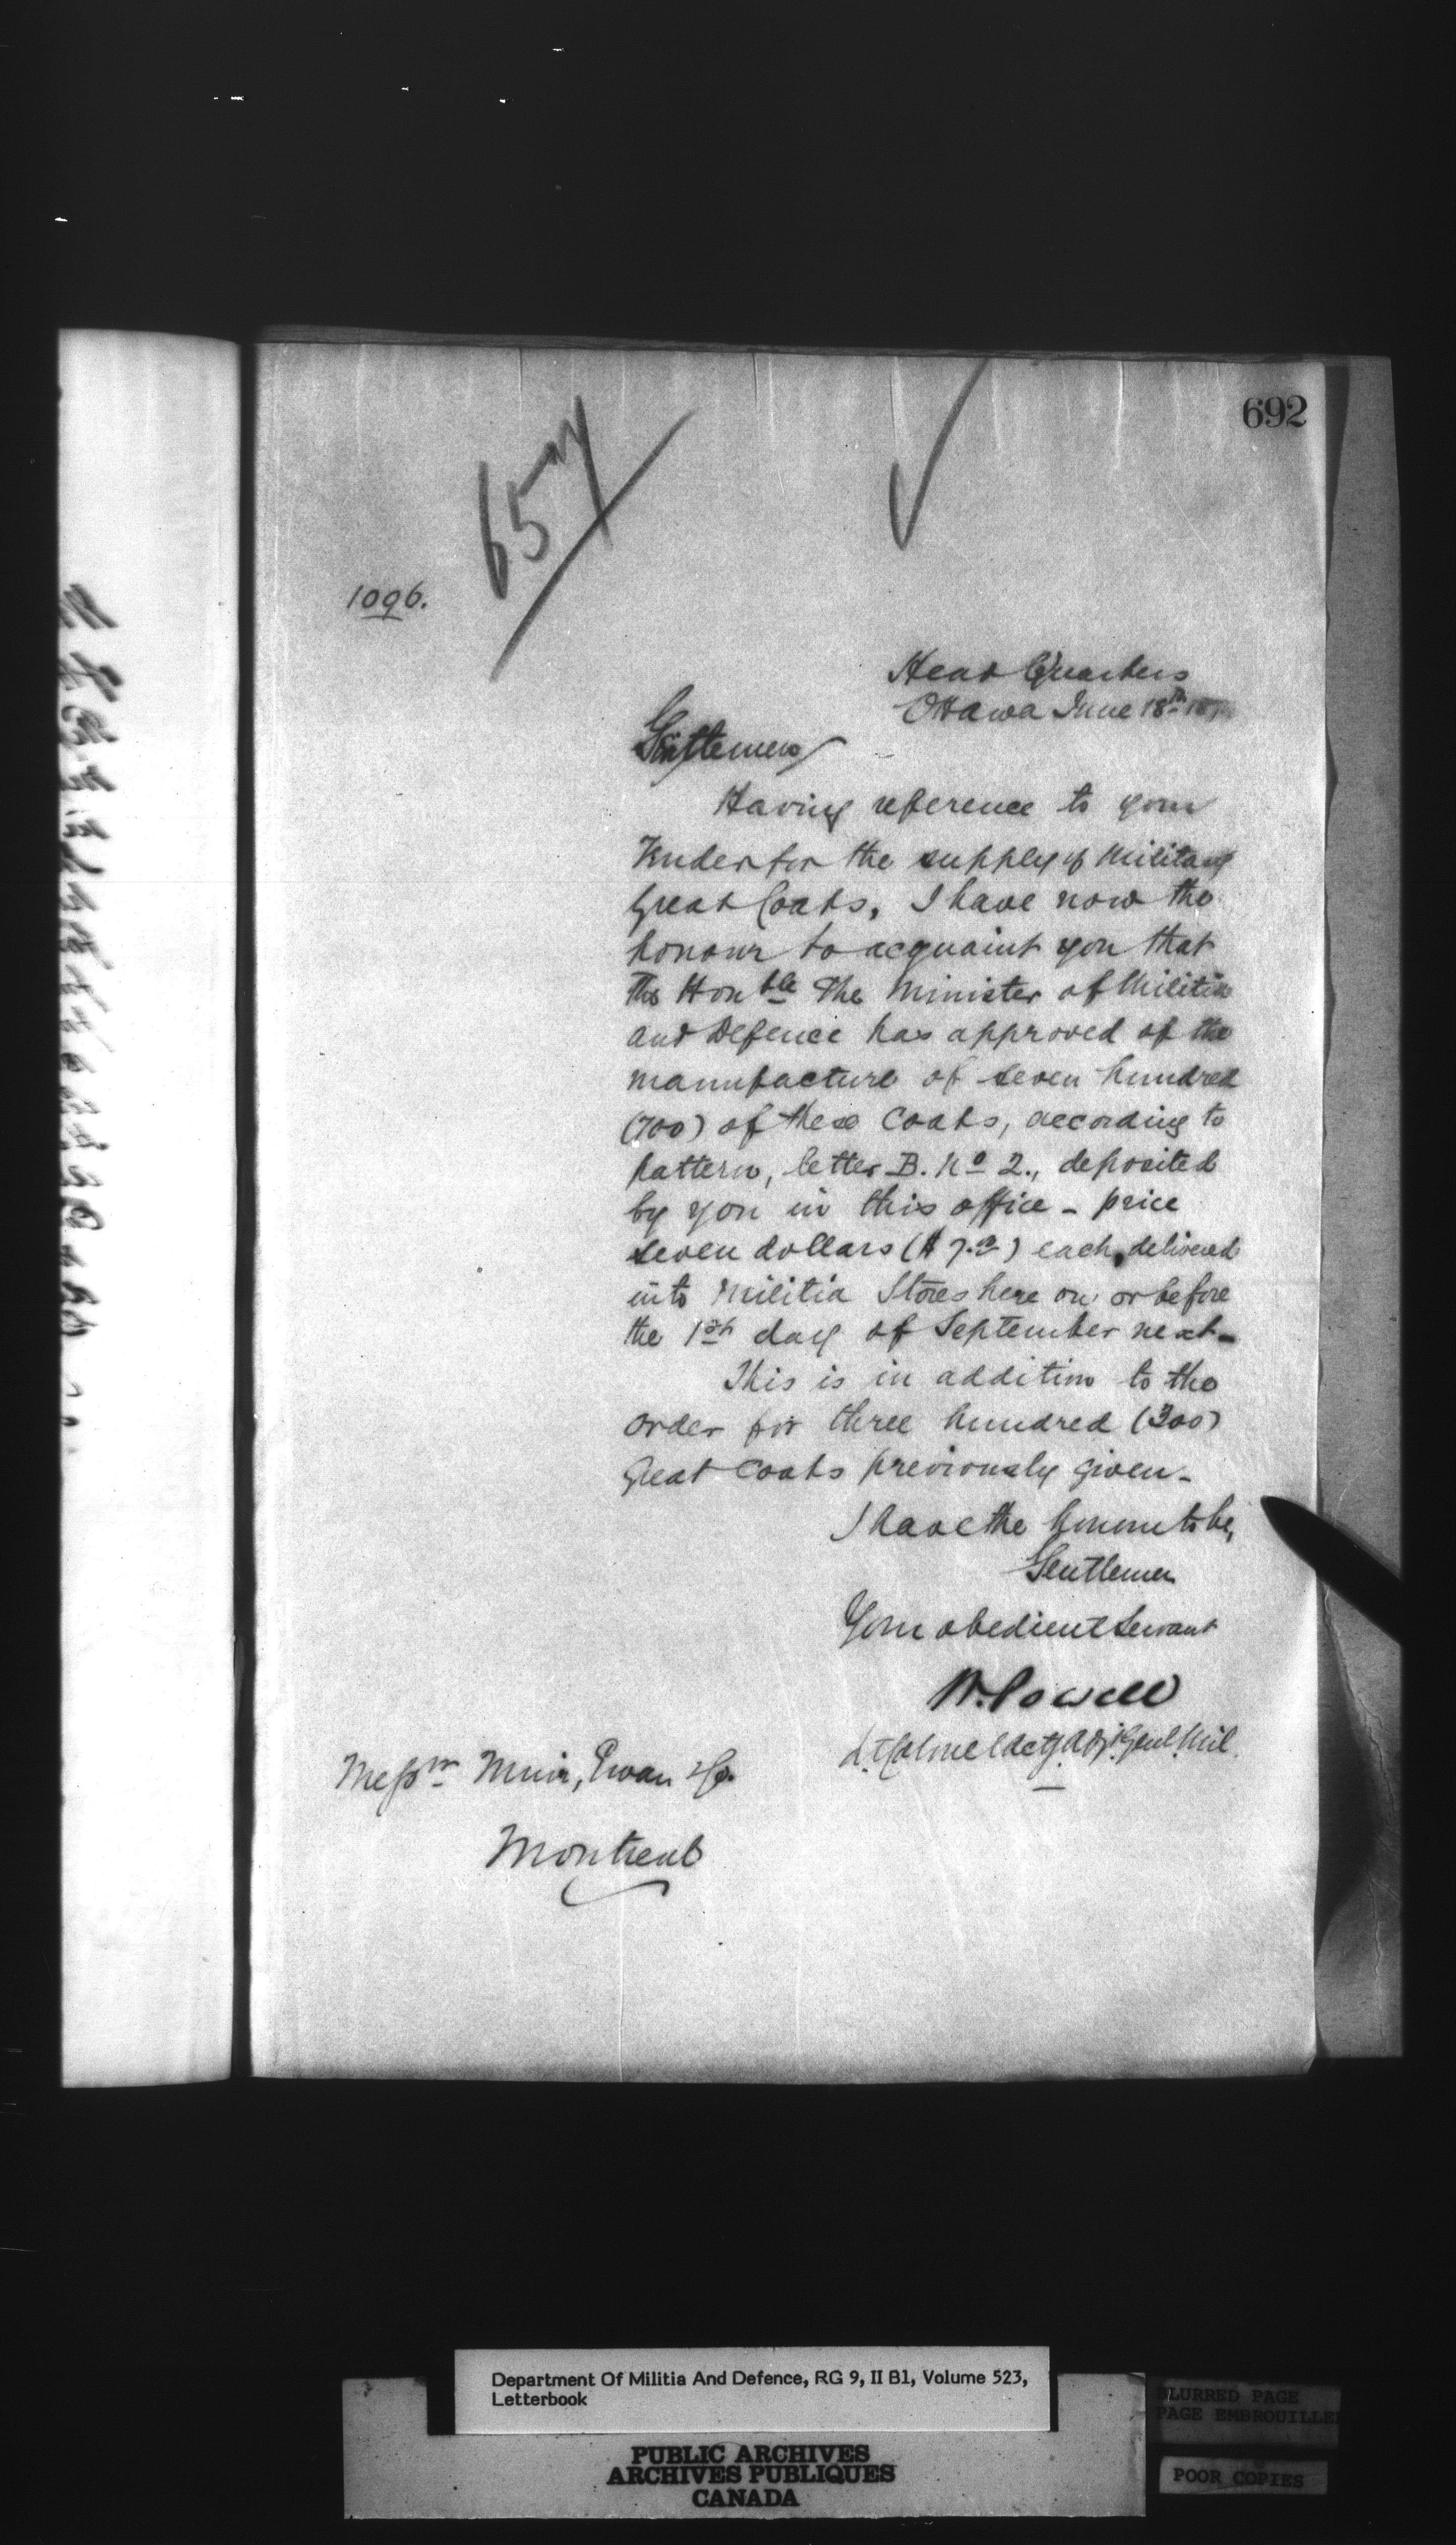 692
657
1096.
Head Quarters
Ottawa June 18th
Gentlemen
Having reference to your
Tender for the supply of Military
Great Coats, I have now the
honour to acquaint you that
The Honble The Minister of Militia
and Defence has approved of the
manufacture of seven hundred
(700) of these Coats, according to
pattern, letter B. No 2., deposited
by you in this office - price
seven dollars ($7.) each, delivered
into Militia Stores here on or before
the 1st day of September next -
This is in addition to the
order for three hundred (300)
Great Coats previously given -
I have the honour to be,
Gentlemen
Your obedient Servant
W. Powell
Lt. Colonel Actg. Adjt. Genl. Mil.
Messrs Muir, Ewan & Co.
Montreal
Department Of Militia And Defence, RG 9, II B1, Volume 523,
Letterbook
PUBLIC ARCHIVES
ARCHIVES PUBLIQUES
CANADA
BLURRED PAGE
PAGE EMBROUILLEE
POOR COPIES